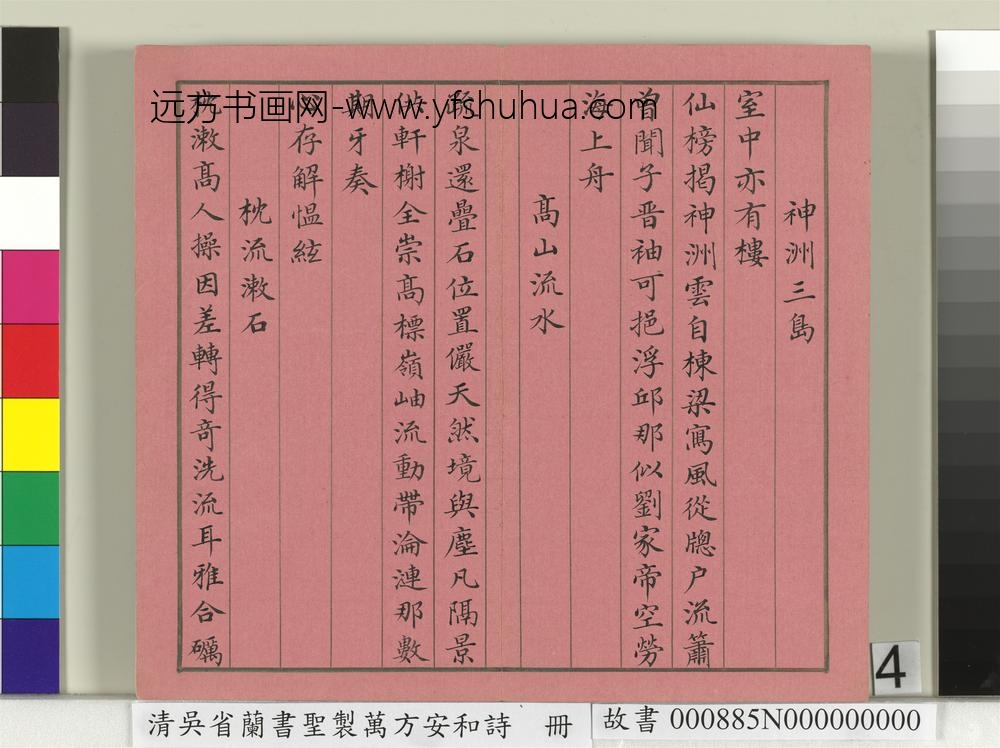 神洲三島
室中亦有樓
仙榜揭神洲雲自棟梁寫風從牕户流簫
曽聞子晋袖可挹浮邱那似劉家帝空勞
海上舟
髙山流水
泉還疊石位置儼天然境與塵凡隔景
供軒榭全崇髙標嶺岫流動帶淪漣那數
期牙奏
存解愠絃
枕流潄石
潄髙人操因差轉得奇洗流耳雅合礪
远方书画网-www.yfshuhua.com
4
清吳省蘭書聖製萬方安和詩 冊
故書 000885N000000000